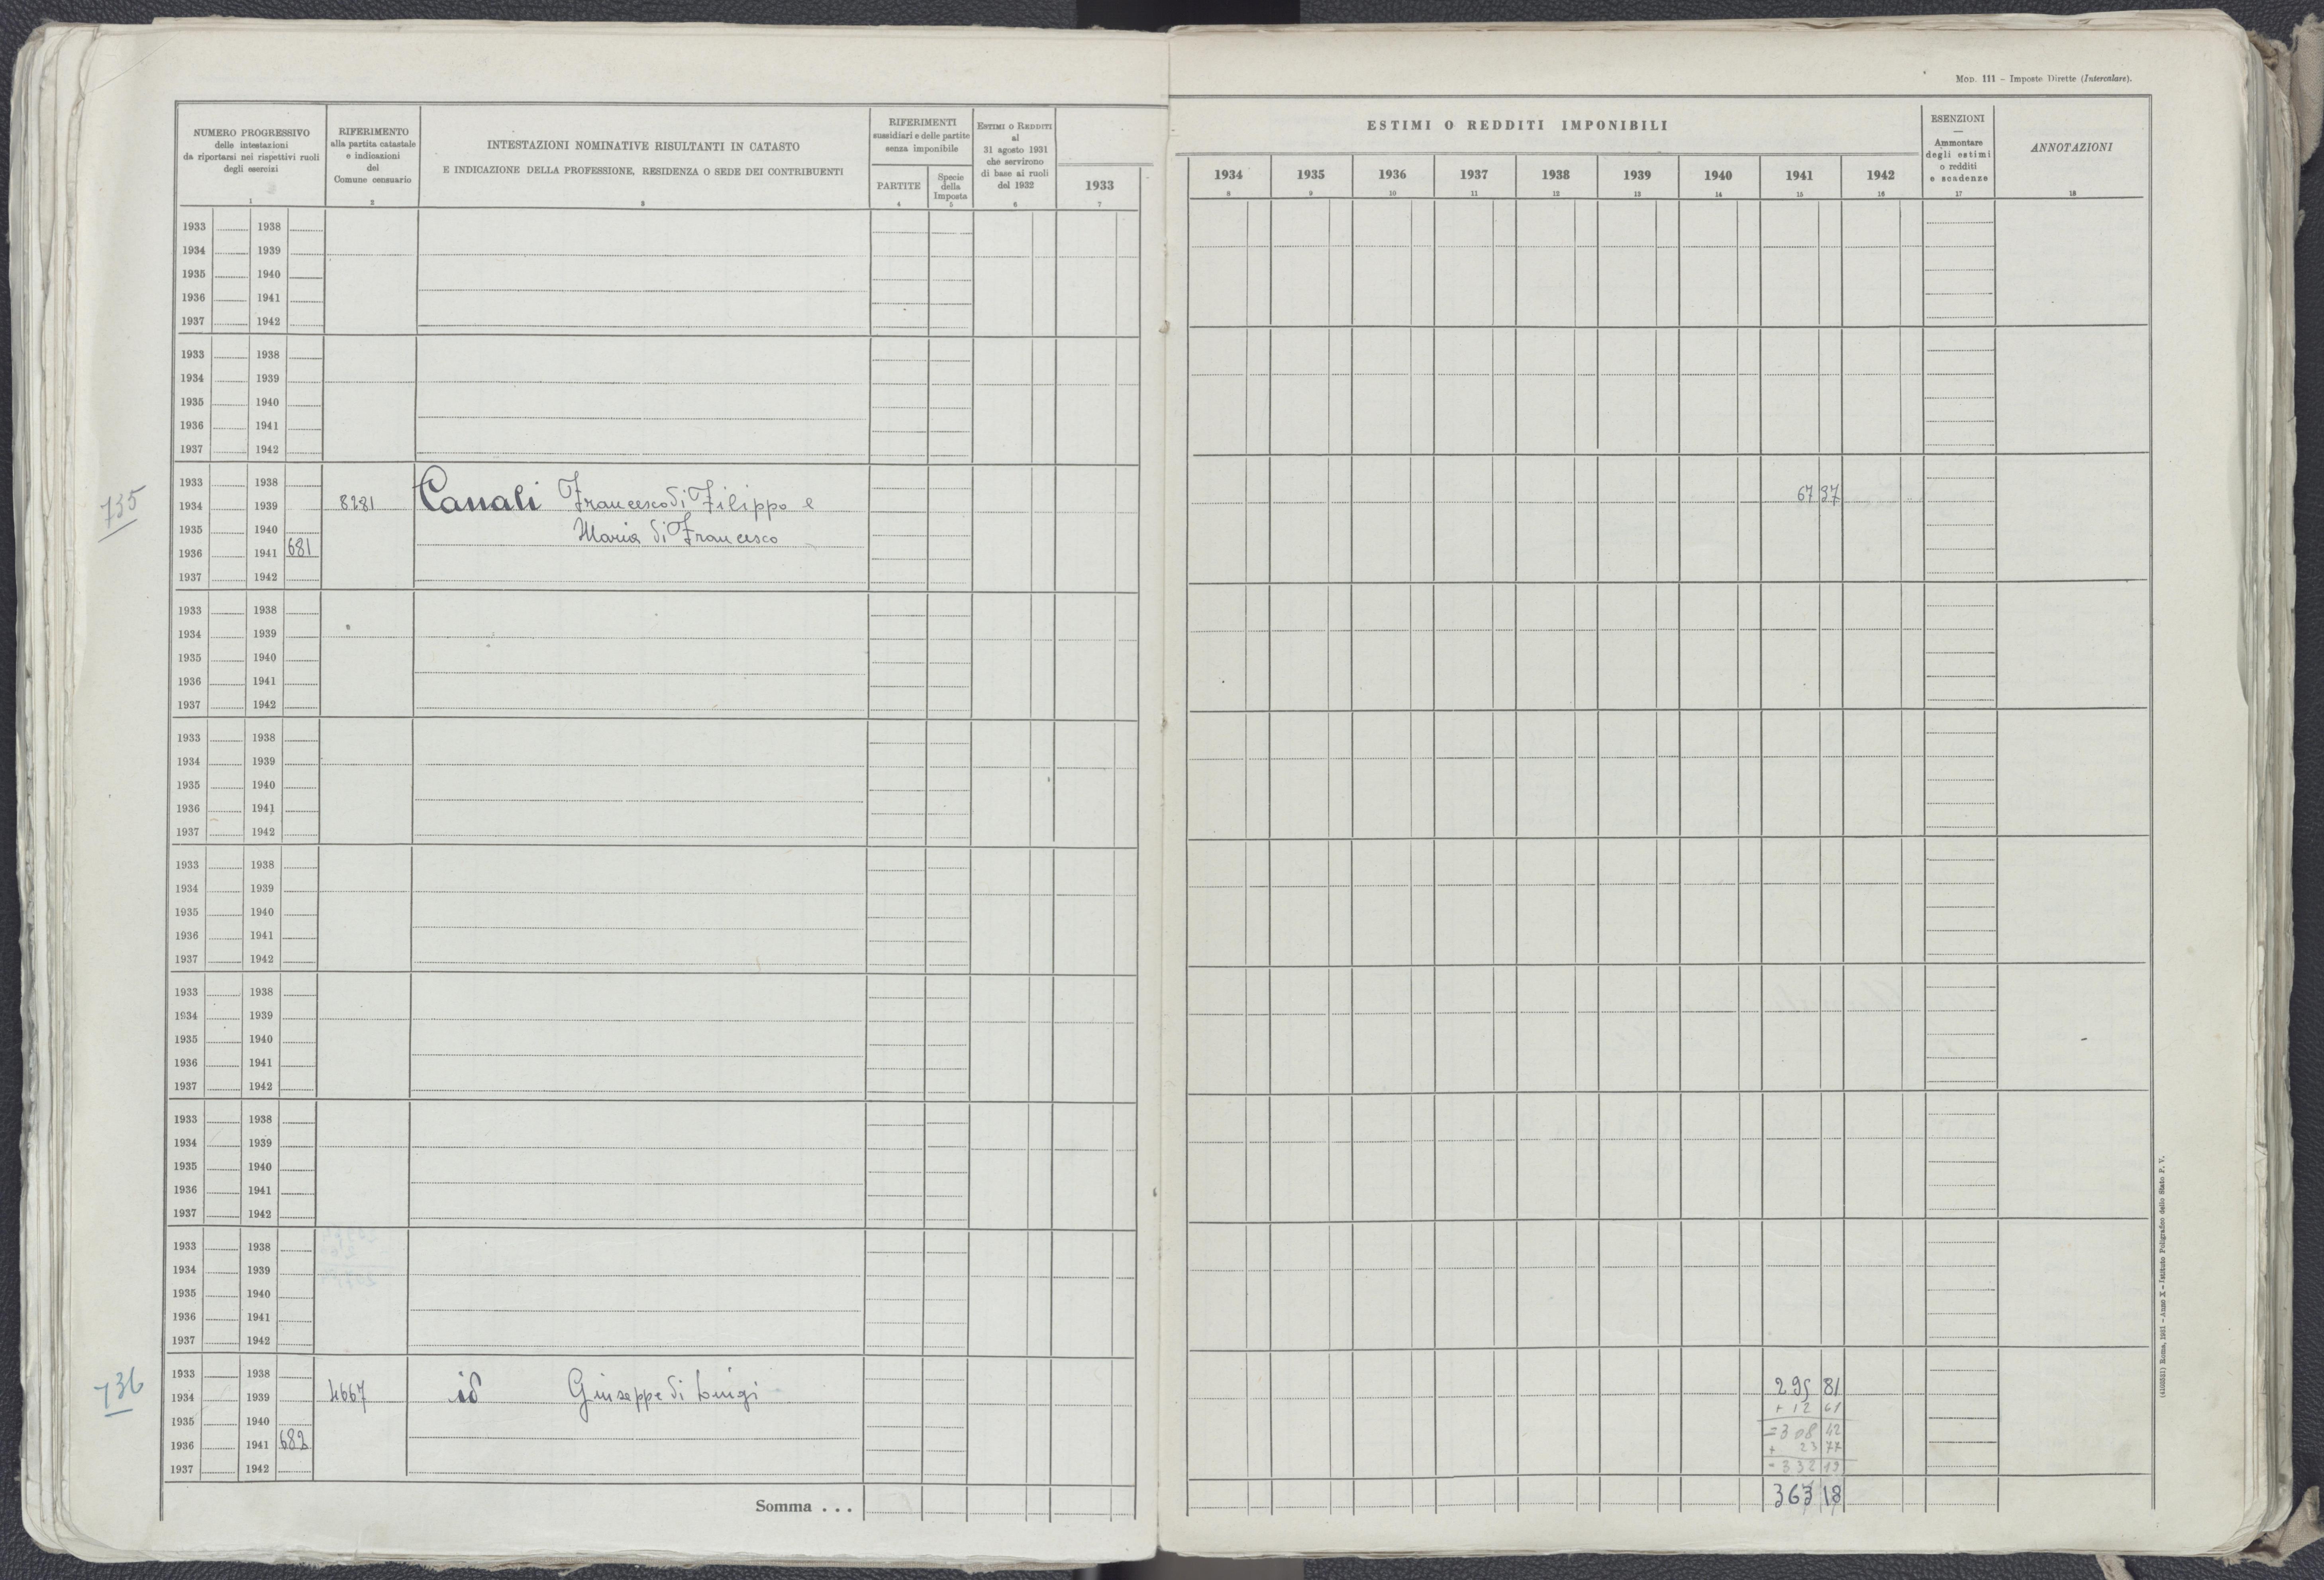 Mod. 111 – Imposte Dirette (Intercalare).
NUMERO PROGRESSIVO
delle intestazioni
da riportarsi nei rispettivi ruoli
degli esercizi
1
RIFERIMENTO
alla partita catastale
e indicazioni
del
Comune censuario
2
INTESTAZIONI NOMINATIVE RISULTANTI IN CATASTO
E INDICAZIONE DELLA PROFESSIONE, RESIDENZA O SEDE DEI CONTRIBUENTI
3
RIFERIMENTI
sussidiari e delle partite
senza imponibile
PARTITE
4
Specie
della
Imposta
5
Estimi o Redditi
al
31 agosto 1931
che servirono
di base ai ruoli
del 1932
6
1933
7
ESTIMI O REDDITI IMPONIBILI
1934 1935 1936 1937 1938 1939 1940 1941 1942
8 9 10 11 12 13 14 15 16
ESENZIONI
—
Ammontare
degli estimi
o redditi
e scadenze
17
ANNOTAZIONI
18
1933 1938
1934 1939
1935 1940
1936 1941
1937 1942
1933 1938
1934 1939
1935 1940
1936 1941
1937 1942
735
1933 1938
1934 1939 8281 Canali Francesco di Filippo e 67 37
1935 1940 Maria di Francesco
1936 1941 681
1937 1942
1933 1938
1934 1939
1935 1940
1936 1941
1937 1942
1933 1938
1934 1939
1935 1940
1936 1941
1937 1942
1933 1938
1934 1939
1935 1940
1936 1941
1937 1942
1933 1938
1934 1939
1935 1940
1936 1941
1937 1942
1933 1938
1934 1939
1935 1940
1936 1941
1937 1942
1933 1938
1934 1939
1935 1940
1936 1941
1937 1942
736
1933 1938 295 81
1934 1939 4667 id Giuseppe di Luigi + 12 61
1935 1940 = 308 42
1936 1941 682 + 23 77
1937 1942 = 332 19
Somma . . . 363 18
(4166831) Roma, 1931 – Anno X – Istituto Poligrafico dello Stato P. V.